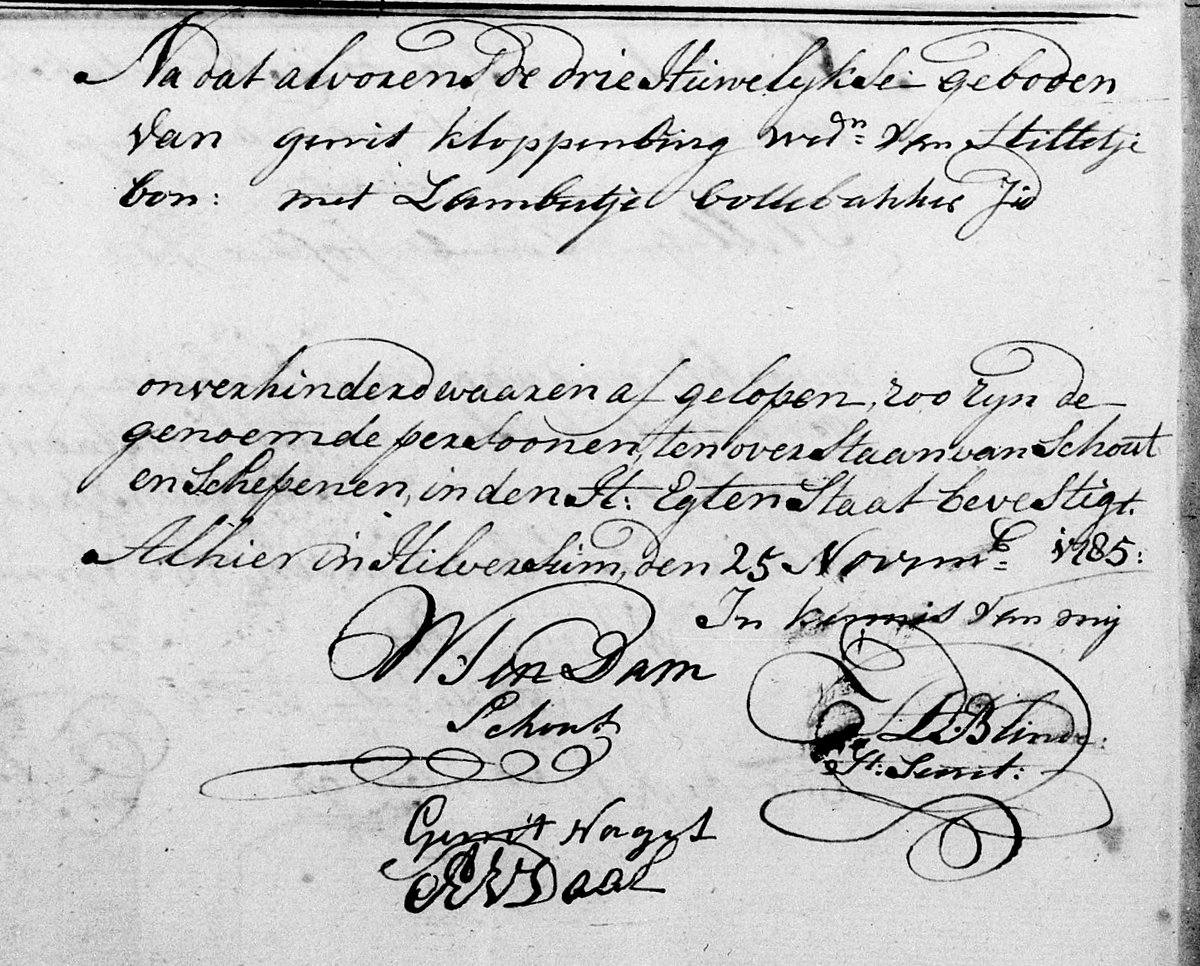 Na dat alvorens de drie Huwelykse geboden
van gerrit kloppenburg wedn: van Hilletje
bon: met Lambertje bollebakker Jd
onverhinderd waaren af gelopen, zoo zyn de
genoemde persoonen, ten overstaan van Schout
en Schepenen, in den H: Egten Staat bevestigt.
Alhier in Hilversum, den 25 Novemb: 1785:
In kennis van mij
Dam
Schout
Secret:
Gerrit Nagel
Daal